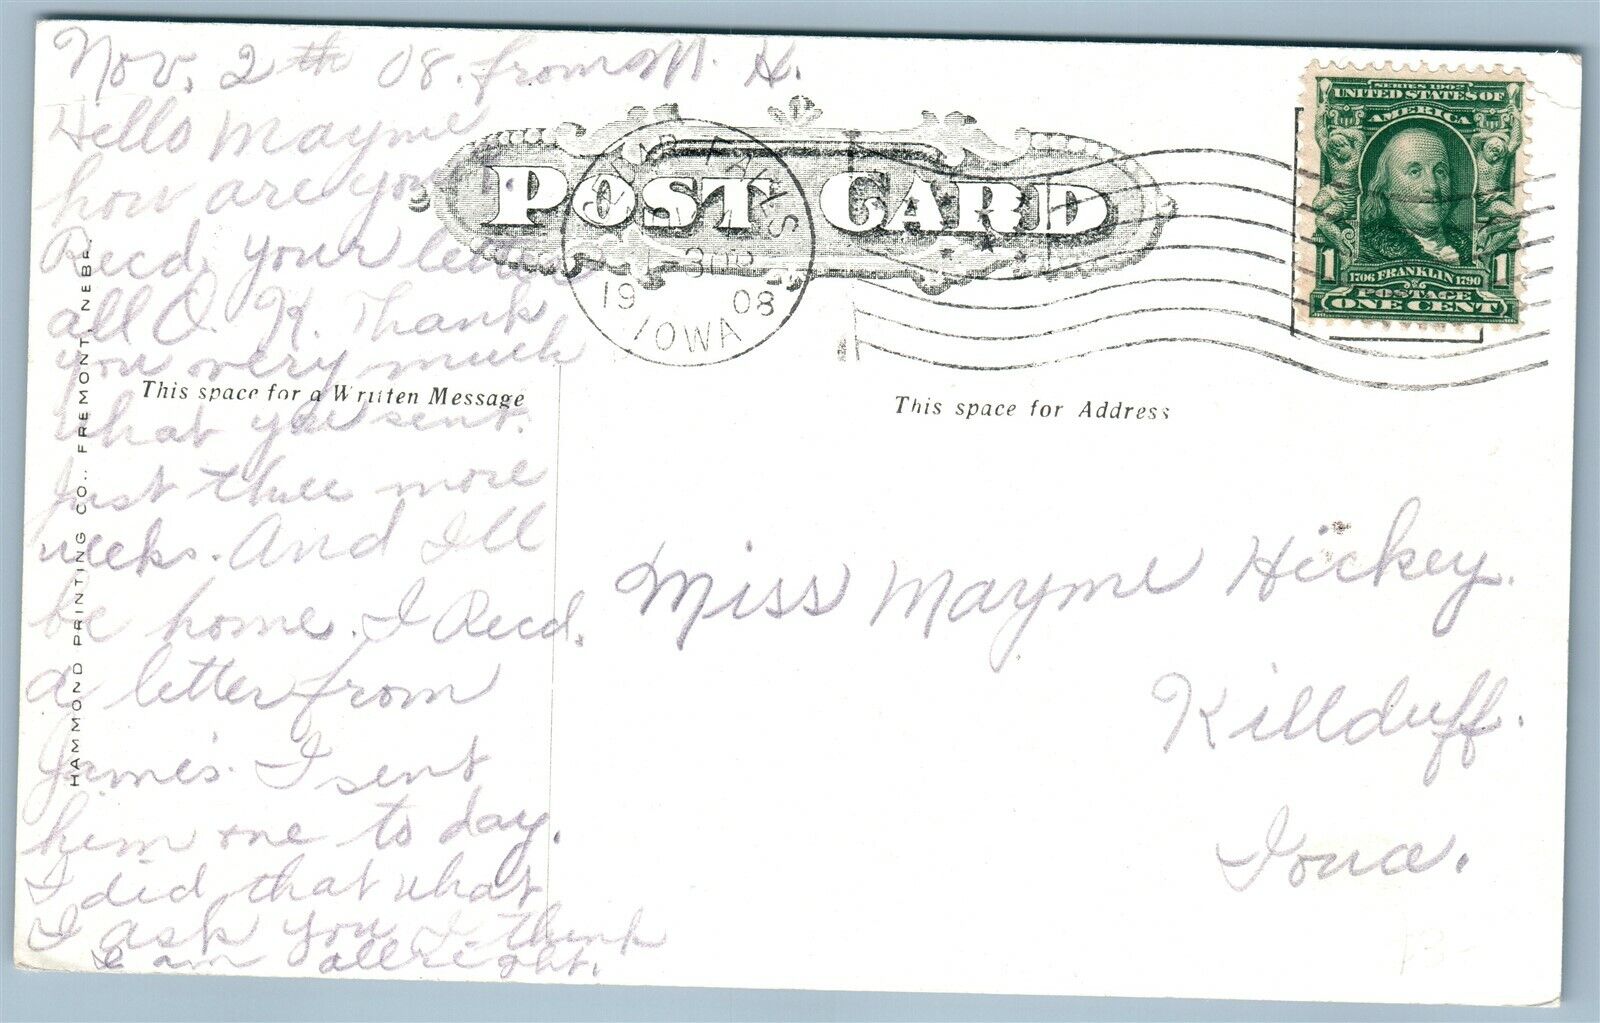 Nov. 2th 08. from M. H.
Hello Mayme
how are you
Recd. your letter
all O. K. Thank
you very much
what you sent.
Just three more
weeks. And Ill
be home. I Recd.
a letter from
James. I sent
him one to day.
I did that what
I ask you I think
I am allright.
HAMMOND PRINTING CO., FREMONT, NEBR.
POST CARD
This space for a Written Message
This space for Address
FALLS
1908
IOWA
SERIES 1902
UNITED STATES OF
AMERICA
1706 FRANKLIN 1790
POSTAGE
1 ONE CENT 1
Miss Mayme Hickey.
Killduff.
Iowa.